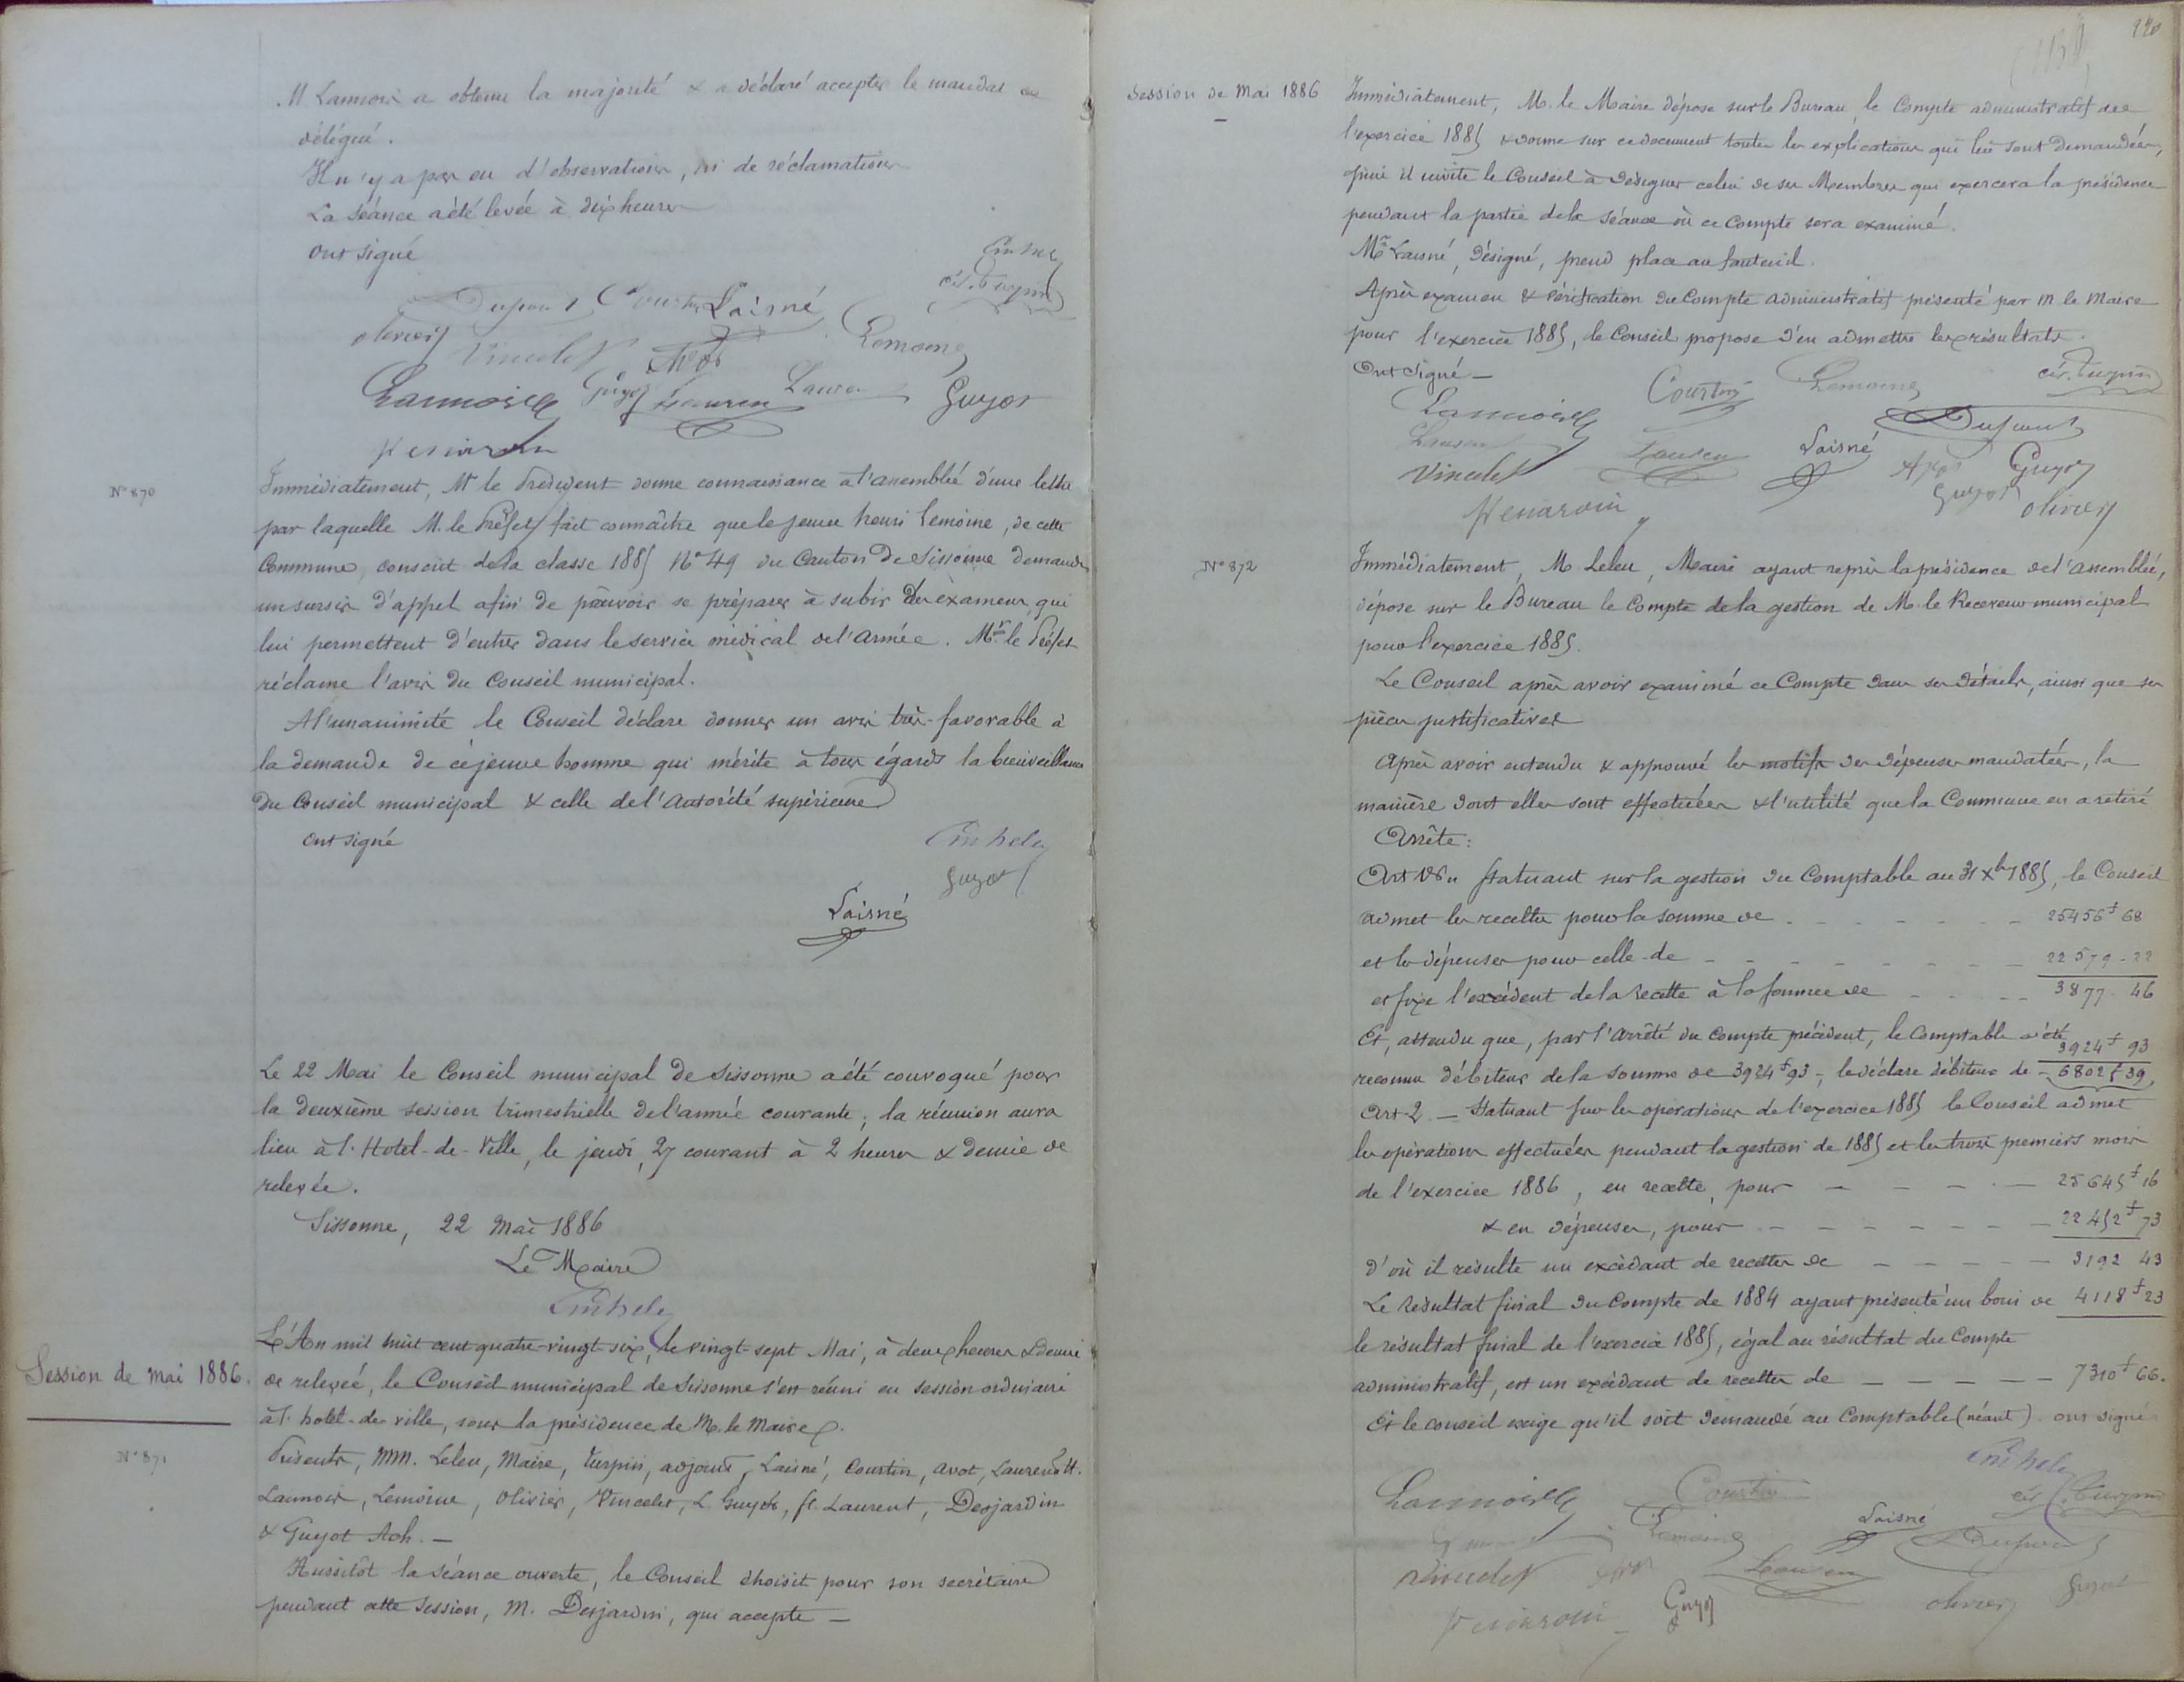 M Lannois a obtenu la majorité & a déclaré accepter le mandat de
délégué.
Il n'y a pas eu d'observations, ni de réclamations
La séance a été levée à dix heures
ont signé
Dupont Courtin Laisné
Olivier Vincelet Avot Lemoine
Lannois Guyot Laurent Laurent Guyot
N° 870
Immédiatement, Mr le Président donne connaissance à l'assemblée d'une lettre
par laquelle M. le Préfet fait connaître que le jeune henri Lemoine, de cette
Commune, conscrit de la classe 1885 N° 49 du Canton de Sissonne demande
un sursis d'appel afin de pouvoir se préparer à subir des examens, qui
lui permettent d'entrer dans le service médical de l'armée. Mr le Préfet
réclame l'avis du Conseil municipal.
A l'unanimité le Conseil déclare donner un avis très-favorable à
la demande de ce jeune homme qui mérite à tous égards la bienveillance
du Conseil municipal & celle de l'Autorité supérieure
ont signé
Guyot
Laisné
Le 22 Mai le Conseil municipal de Sissonne a été convoqué pour
la deuxième session trimestrielle de l'année courante; la réunion aura
lieu à l'Hotel-de-Ville, le jeudi, 27 courant à 2 heures & demie de
relevée.
Sissonne, 22 Mai 1886
Le Maire
Session de Mai 1886.
L'An mil huit cent quatre-vingt-six, le vingt-sept Mai, à deux heures & demie
de relevée, le Conseil municipal de Sissonne s'est réuni en session ordinaire
à l'hotel-de-ville, sous la présidence de M. le Maire.
N° 871
Présents, MM. Leleu, Maire, Turpin, adjoint, Laisné, Courtin, Avot, Laurent H.
Lannois, Lemoine, Olivier, Vincelet, L. Guyot, ft. Laurent, Desjardin
& Guyot Ach. —
Aussitôt la séance ouverte, le Conseil choisit pour son secrétaire
pendant cette session, M. Desjardin, qui accepte —
220
Session de Mai 1886
Immédiatement, M. le Maire dépose sur le Bureau, le Compte administratif de
l'exercice 1885 & donne sur ce document toutes les explications qui lui sont demandées,
puis il invite le Conseil à désigner celui de ses Membres qui exercera la présidence
pendant la partie de la séance où ce Compte sera examiné.
Mr Laisné, désigné, prend place au fauteuil.
Après examen & vérification du Compte administratif présenté par M le Maire
pour l'exercice 1885, le Conseil propose d'en admettre les résultats.
Ont signé —
Lannois Courtin Lemoine cés. Turpin
Dupont
Laurent Laurent Laisné Avot Guyot
Vincelet Guyot Olivier
N° 872
Immédiatement, M. Leleu, Maire ayant repris la présidence de l'assemblée,
dépose sur le Bureau le Compte de la gestion de M. le Receveur municipal
pour l'exercice 1885.
Le Conseil après avoir examiné ce Compte dans ses détails, ainsi que ses
pièces justificatives
Après avoir entendu & approuvé les motifs des dépenses mandatées, la
manière dont elles sont effectuées & l'utilité que la Commune en a retiré
Arrête:
Art 1er Statuant sur la gestion du Comptable au 31 Xbre 1885, le Conseil
admet les recettes pour la somme de - - - - - 25456f 68
et les dépenses pour celle de - - - - - 22579 - 22
et fixe l'excédent de la recette à la somme de - - - 3877. 46
Et, attendu que, par l'arrêté du compte précédent, le Comptable a été 3924f 93
reconnu débiteur de la somme de 3924f93-, le déclare débiteur de - 6802f39
Art 2 — Statuant sur les opérations de l'exercice 1885 le Conseil admet
les opérations effectuées pendant la gestion de 1885 et les trois premiers mois
de l'exercice 1886, en recette, pour — — — — 25645f 16
& en dépenses, pour — — — — 22452f 73
d'où il résulte un excédant de recettes de — — — — 3192 43
Le résultat final du Compte de 1884 ayant présenté un boni de 4118f23
le résultat final de l'exercice 1885, égal au résultat du Compte
administratif, est un excédant de recettes de — — — — 7310f 66.
Et le conseil exige qu'il soit demandé au Comptable (néant). ont signé
Lannois Courtin
Lemoine Laisné Dupont
Vincelet Avot Laurent
Guyot Olivier Guyot